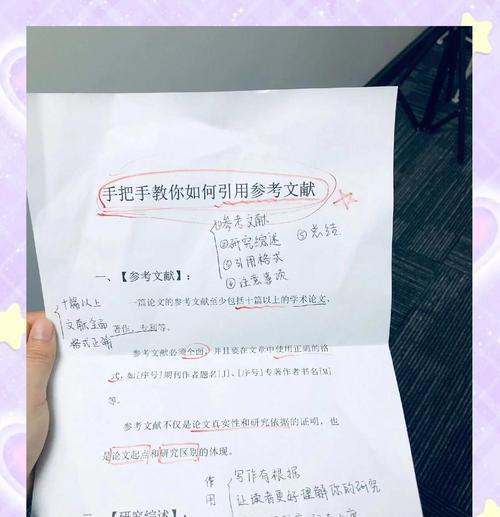 手把手教你如何引用参考文献
①参考文献
②研究综述 ⑤总结
③引用格式
④注意事项
一、【参考文献】：
十篇以上
文献全面
格式正确
一篇论文的参考文献至少包括十篇以上的学术论文、
著作、专利等。
参考文献必须全面，并且要在文章中使用正确的格
式，如[序号]期刊作者题名[J]、[序号]专著作者书名[M]
等。
参考文献不仅是论文真实性和研究依据的证明，也
是论文起点和研究区别的体现。
作用
写作有根据
让读者更好理解你的研究
二、【研究综述】：